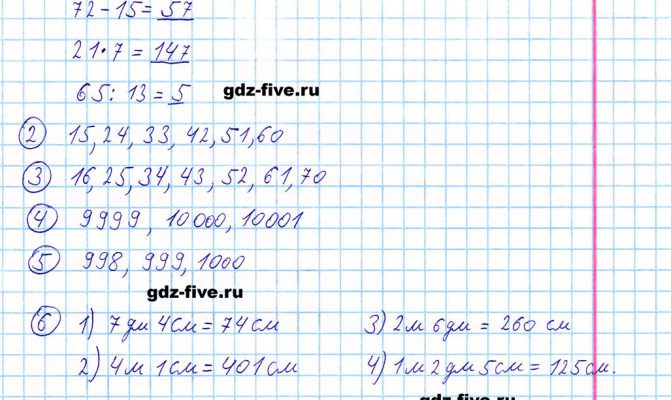 72-15=57
21·7=147
65:13=5
gdz-five.ru
2 15, 24, 33, 42, 51, 60
3 16, 25, 34, 43, 52, 61, 70
4 9999, 10000, 10001
5 998, 999, 1000
gdz-five.ru
6 1) 7дм 4см=74см 3) 2м 6дм = 260 см
2) 4м 1см=401см 4) 1м 2дм 5см = 125см.
gdz-five.ru